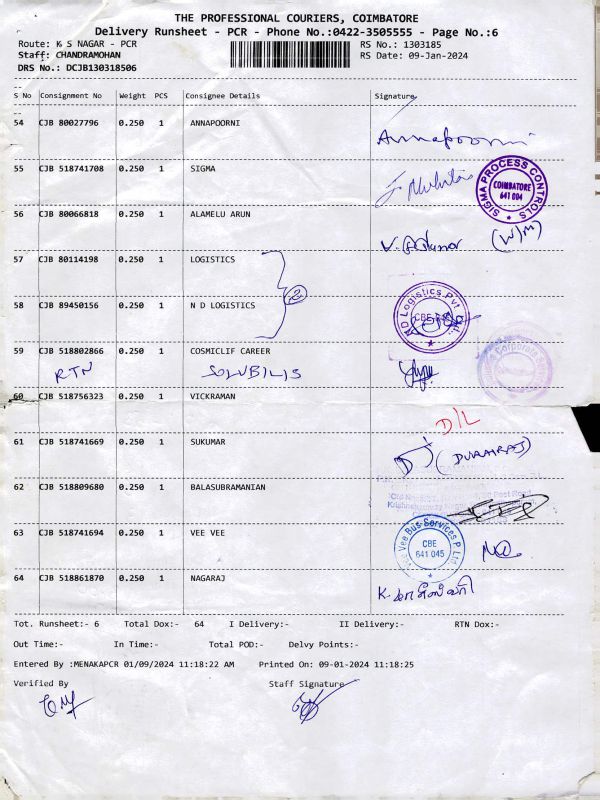 THE PROFESSIONAL COURIERS, COIMBATORE
Delivery Runsheet - PCR - Phone No.:0422-3505555 - Page No.:6
Route: K S NAGAR - PCR
RS No.: 1303185
Staff: CHANDRAMOHAN
RS Date: 09-Jan-2024
DRS No.: DCJB130318506
S No Consignment No Weight PCS Consignee Details Signature
54 CJB 80027796 0.250 1 ANNAPOORNI
Annapoorni
55 CJB 518741708 0.250 1 SIGMA
SIGMA PROCESS CONTROLS
COIMBATORE
641 004
56 CJB 80066818 0.250 1 ALAMELU ARUN
(W/M)
57 CJB 80114198 0.250 1 LOGISTICS
2
58 CJB 89450156 0.250 1 N D LOGISTICS
Logistics Pvt
CBE
59 CJB 518802866 0.250 1 COSMICLIF CAREER
RTN SOLUBILIS
60 CJB 518756323 0.250 1 VICKRAMAN
D/L
61 CJB 518741669 0.250 1 SUKUMAR
(DURAIRAJ)
62 CJB 518809680 0.250 1 BALASUBRAMANIAN
63 CJB 518741694 0.250 1 VEE VEE
Vee Vee Bus Services P Ltd
CBE
641 045
64 CJB 518861870 0.250 1 NAGARAJ
Tot. Runsheet:- 6 Total Dox:- 64 I Delivery:- II Delivery:- RTN Dox:-
Out Time:- In Time:- Total POD:- Delvy Points:-
Entered By :MENAKAPCR 01/09/2024 11:18:22 AM Printed On: 09-01-2024 11:18:25
Verified By Staff Signature